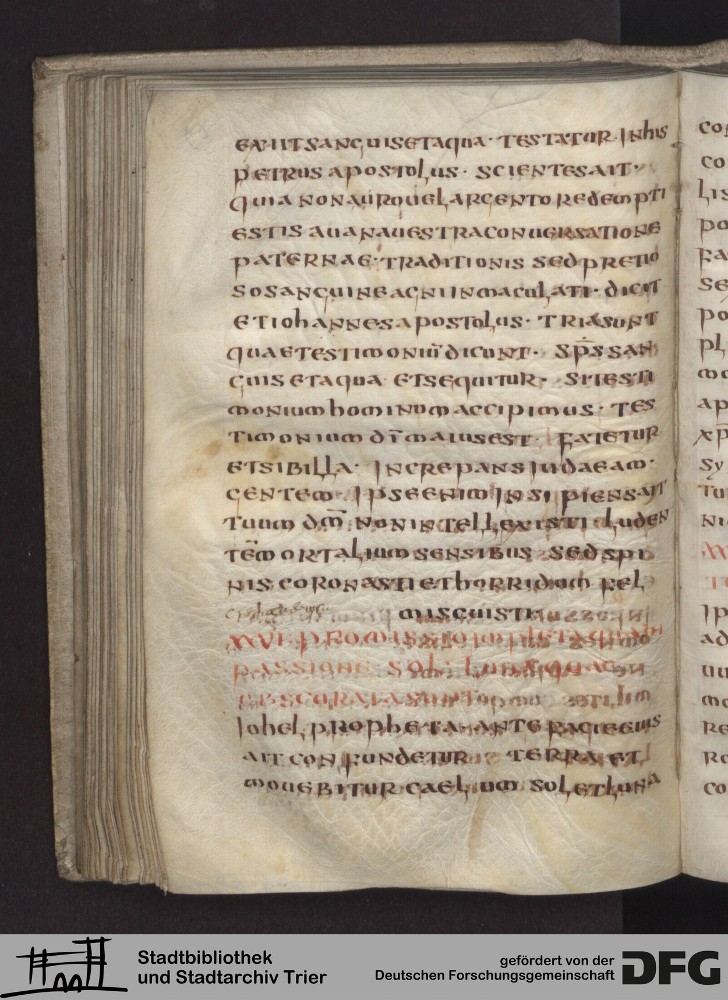 EXIIT SANGUIS ET AQUA · TESTATUR IN HIS
PETRUS APOSTOLUS · SCIENTES AIT ·
QUIA NON AURO UEL ARGENTO REDEMPTI
ESTIS A UANA UESTRA CONUERSATIONE
PATERNAE · TRADITIONIS SED PRETIO
SO SANGUINE AGNI INMACULATI · DICIT
ET IOHANNES APOSTOLUS · TRIA SUNT
QUAE TESTIMONIŪ DICUNT · SP̄S SAN
GUIS ET AQUA ET SEQUITUR · SI TESTI
MONIUM HOMINUM ACCIPIMUS · TES
TIMONIUM DĪ MAIUS EST · FATETUR
ET SIBILLA · INCREPANS IUDAEAM ·
GENTEM · IPSE ENIM INSIPIENS AIT
TUUM DM̄ NON INTELLEXISTI LUDEN
TĒ MORTALIUM SENSIBUS SED SPI
NIS CORONASTI ET HORRIDUM FEL
MISCUISTI
XXVI PROMISSIO IMPLETA
PASSIONE SOL
OBSCURATA SUNT
IOHEL PROPHETA · ANTE FACIEM EIUS
AIT CONFUNDETUR TERRA ET
MOUEBITUR CAELUM SOL ET LUNA
CO
LIS
PO
FA
SE
PO
PL
MO
AP
XP̄
SY
TU
NI
IP
AD
UU
MO
RE
RO
CO
Stadtbibliothek
und Stadtarchiv Trier
gefördert von der
Deutschen Forschungsgemeinschaft
DFG